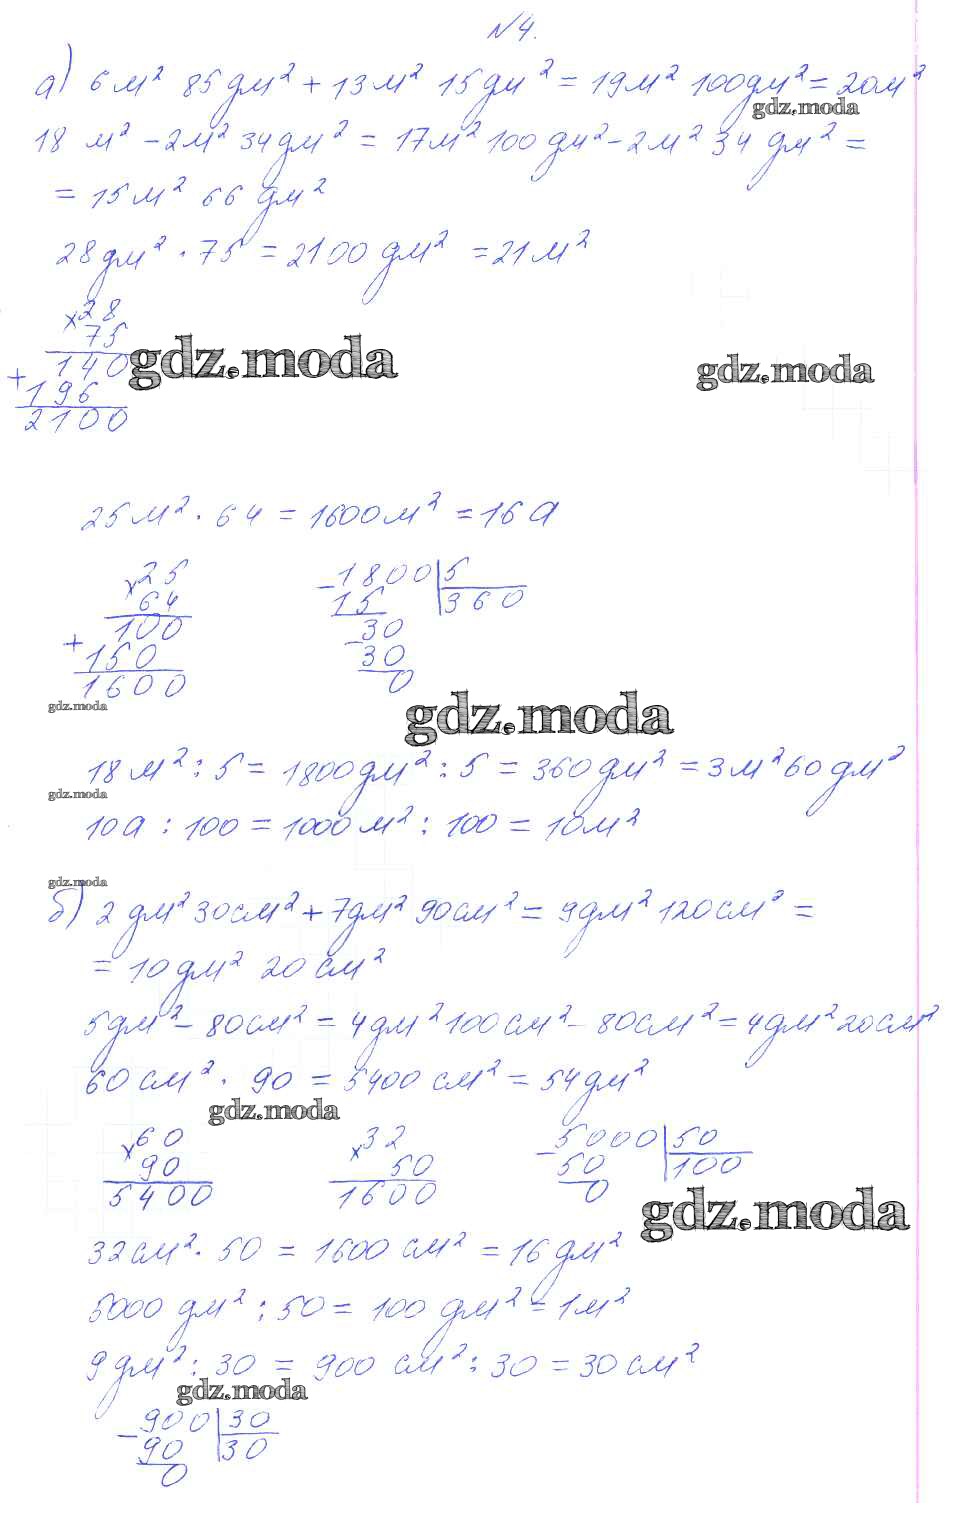 №4.
а) 6 м² 85 дм² + 13 м² 15 дм² = 19 м² 100 дм² = 20 м²
gdz.moda
18 м² - 2 м² 34 дм² = 17 м² 100 дм² - 2 м² 34 дм² =
= 15 м² 66 дм²
28 дм² · 75 = 2100 дм² = 21 м²
× 28
75
140
+ 196
2100
gdz.moda
gdz.moda
25 м² · 64 = 1600 м² = 16 а
× 25
64
100
+ 150
1600
- 1800 | 5
15 360
- 30
30
0
gdz.moda
gdz.moda
18 м² : 5 = 1800 дм² : 5 = 360 дм² = 3 м² 60 дм²
gdz.moda
10 а : 100 = 1000 м² : 100 = 10 м²
gdz.moda
б) 2 дм² 30 см² + 7 дм² 90 см² = 9 дм² 120 см² =
= 10 дм² 20 см²
5 дм² - 80 см² = 4 дм² 100 см² - 80 см² = 4 дм² 20 см²
60 см² · 90 = 5400 см² = 54 дм²
gdz.moda
× 60
90
5400
× 32
50
1600
- 5000 | 50
50 100
0
gdz.moda
32 см² · 50 = 1600 см² = 16 дм²
5000 дм² : 50 = 100 дм² = 1 м²
9 дм² : 30 = 900 см² : 30 = 30 см²
gdz.moda
- 900 | 30
90 30
0